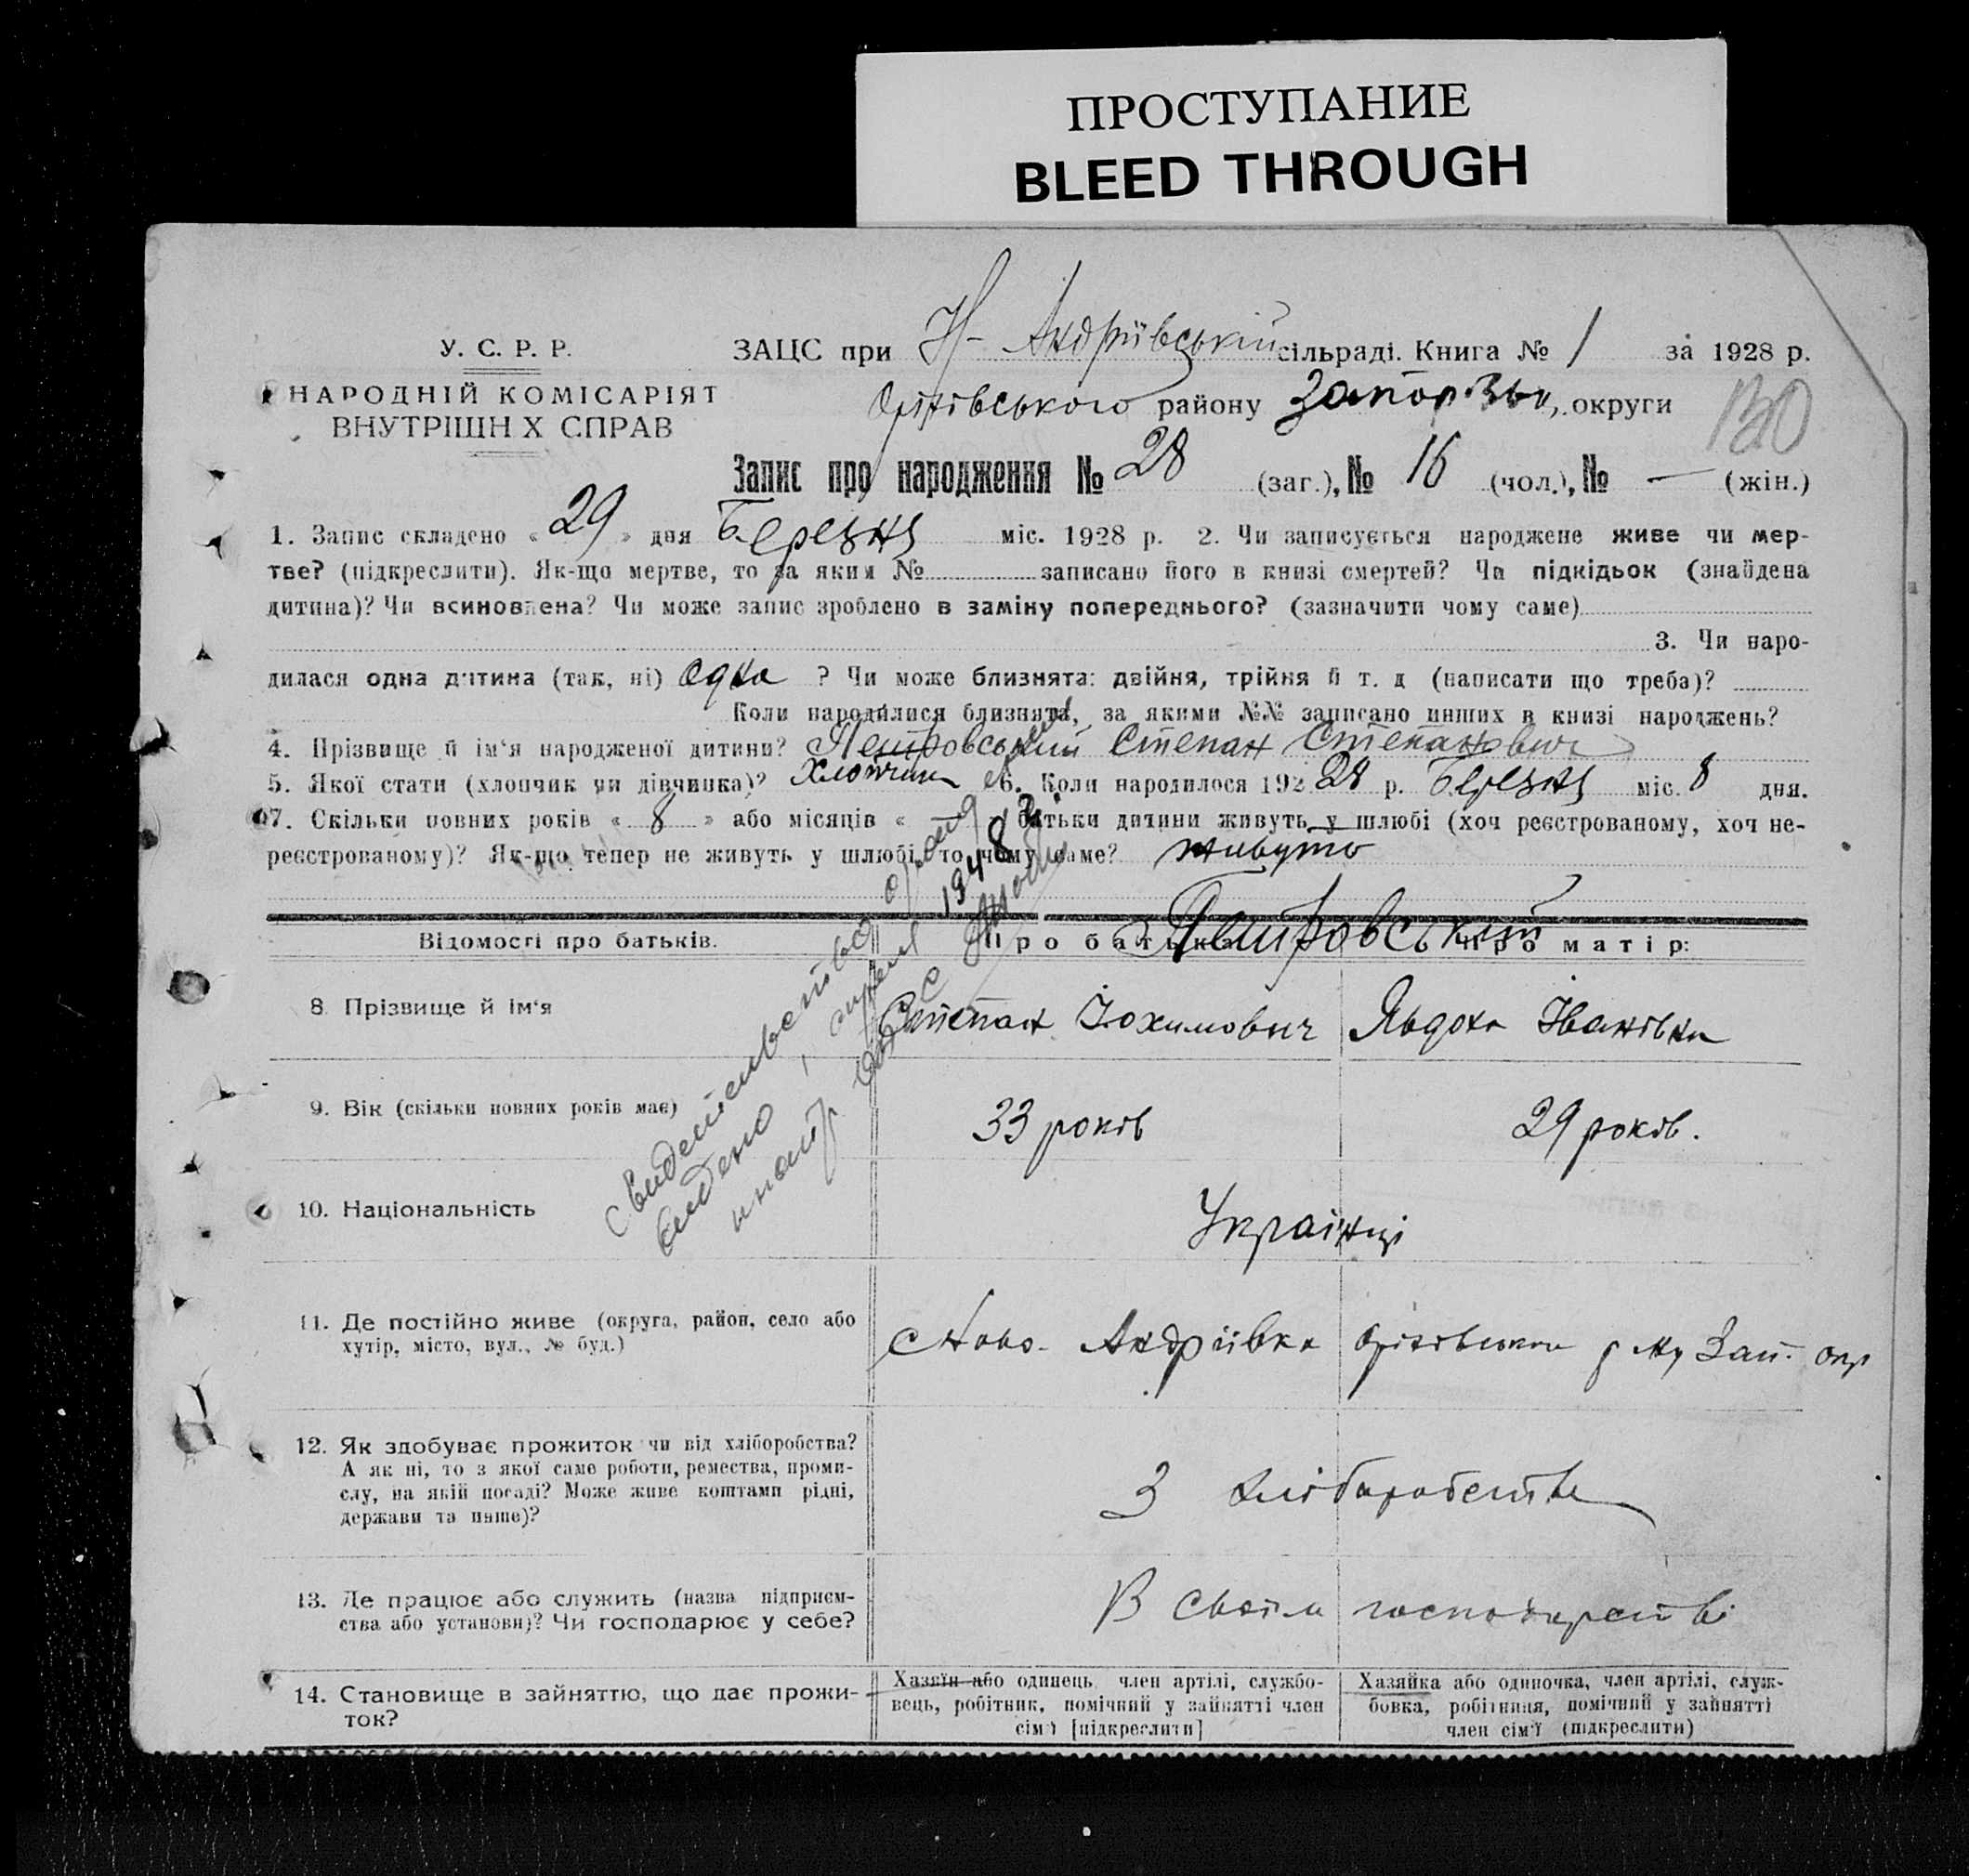 ПРОСТУПАНИЕ
BLEED THROUGH
У. С. Р. Р.
НАРОДНІЙ КОМІСАРІЯТ
ВНУТРІШН Х СПРАВ
ЗАЦС при Н-Андріївській сільраді. Книга № 1 за 1928 р.
Оріхівського району Запорізьк. округи
130
Запис про народження № 28 (заг.), № 16 (чол.), № — (жін.)
1. Запис складено «29» дня Березня міс. 1928 р. 2. Чи записується народжене живе чи мер-
тве? (підкреслити). Як-що мертве, то за яким № записано його в книзі смертей? Чи підкідьок (знайдена
дитина)? Чи всиновлена? Чи може запис зроблено в заміну попереднього? (зазначити чому саме)
3. Чи наро-
дилася одна дитина (так, ні) одна ? Чи може близнята: двійня, трійня й т. д (написати що треба)?
Коли народилися близнята, за якими №№ записано инших в книзі народжень?
4. Прізвище й ім'я народженої дитини? Петровський Степан Степанович
5. Якої стати (хлопчик чи дівчинка)? Хлопчик 6. Коли народилося 192 28 р. Березня міс. 8 дня.
7. Скільки повних років « 8 » або місяців « » батьки дитини живуть у шлюбі (хоч реєстрованому, хоч не-
реєстрованому)? Як-що тепер не живуть у шлюбі, то чому саме? живуть
Свидетельство
видено 1 апреля 1948 г.
Відомості про батьків.
Про батька:
Про матір:
Петровський
8 Прізвище й ім'я
Степан Йохимович
Явдоха Іванівна
9. Вік (скільки повних років має)
33 років
29 років.
10. Національність
Українці
11. Де постійно живе (округа, район, село або
хутір, місто, вул., № буд.)
с Ново-Андріївка Оріхівськ р-ну Зап. окр
12. Як здобуває прожиток чи від хліборобства?
А як ні, то з якої саме роботи, ремества, проми-
слу, на якій посаді? Може живе коштами рідні,
держави та инше)?
З хліборобства
13. Де працює або служить (назва підприєм-
ства або установи)? Чи господарює у себе?
В своїм господарстві
14. Становище в зайняттю, що дає прожи-
ток?
Хазяїн або одинець член артілі, службо-
вець, робітник, помічний у зайнятті член
сім'ї [підкреслити]
Хазяйка або одиночка, член артілі, служ-
бовка, робітниця, помічний у зайнятті
член сім'ї (підкреслити)